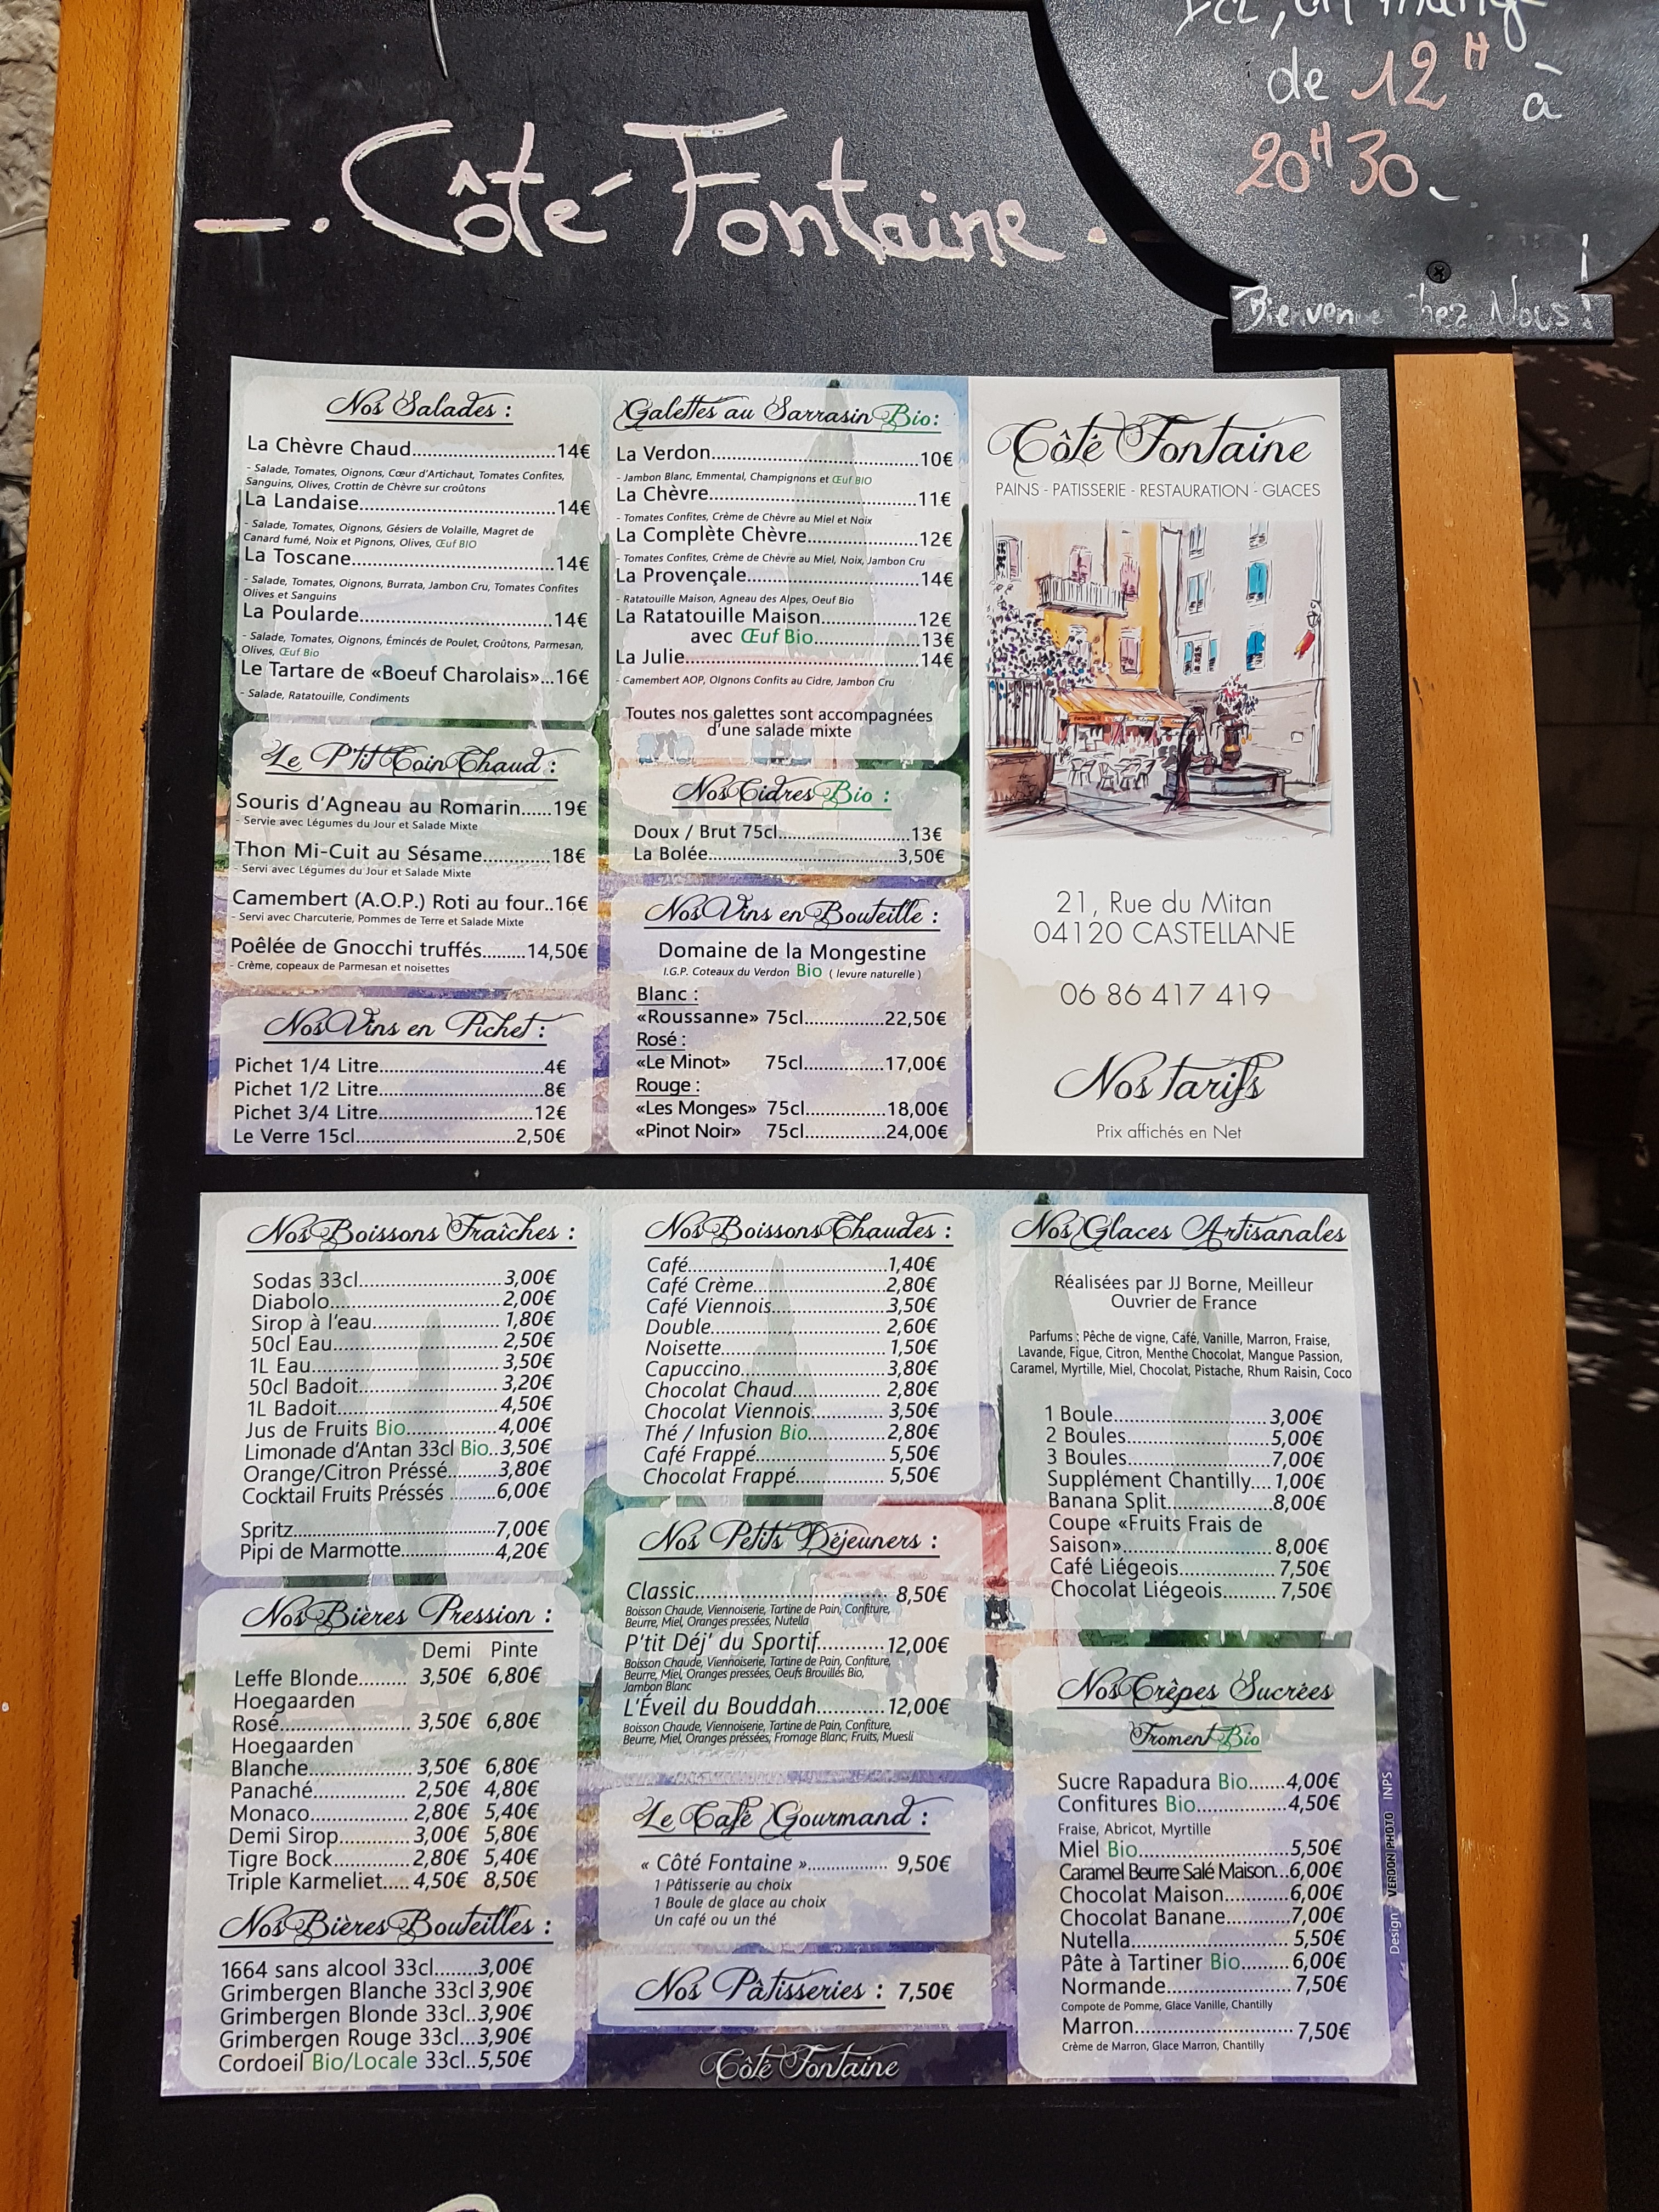 Ici, on mang
de 12H à
20H30.
Bienvenue chez Nous!
Côté Fontaine
Nos Salades :
La Chèvre Chaud..............................14€
- Salade, Tomates, Oignons, Cœur d'Artichaut, Tomates Confites,
Sanguins, Olives, Crottin de Chèvre sur croûtons
La Landaise......................................14€
- Salade, Tomates, Oignons, Gésiers de Volaille, Magret de
Canard fumé, Noix et Pignons, Olives, Œuf BIO
La Toscane.......................................14€
- Salade, Tomates, Oignons, Burrata, Jambon Cru, Tomates Confites
Olives et Sanguins
La Poularde......................................14€
- Salade, Tomates, Oignons, Émincés de Poulet, Croûtons, Parmesan,
Olives, Œuf Bio
Le Tartare de «Boeuf Charolais»...16€
- Salade, Ratatouille, Condiments
Le P'tit Coin Chaud :
Souris d'Agneau au Romarin......19€
- Servie avec Légumes du Jour et Salade Mixte
Thon Mi-Cuit au Sésame............18€
- Servi avec Légumes du Jour et Salade Mixte
Camembert (A.O.P.) Roti au four..16€
- Servi avec Charcuterie, Pommes de Terre et Salade Mixte
Poêlée de Gnocchi truffés.........14,50€
- Crème, copeaux de Parmesan et noisettes
Nos Vins en Pichet :
Pichet 1/4 Litre..............................4€
Pichet 1/2 Litre..............................8€
Pichet 3/4 Litre............................12€
Le Verre 15cl.............................2,50€
Galettes au Sarrasin Bio:
La Verdon.....................................10€
- Jambon Blanc, Emmental, Champignons et Œuf BIO
La Chèvre.....................................11€
- Tomates Confites, Crème de Chèvre au Miel et Noix
La Complète Chèvre....................12€
- Tomates Confites, Crème de Chèvre au Miel, Noix, Jambon Cru
La Provençale...............................14€
- Ratatouille Maison, Agneau des Alpes, Oeuf Bio
La Ratatouille Maison..................12€
avec Œuf Bio...................13€
La Julie..........................................14€
- Camembert AOP, OIgnons Confits au Cidre, Jambon Cru
Toutes nos galettes sont accompagnées
d'une salade mixte
Nos Cidres Bio :
Doux / Brut 75cl........................13€
La Bolée..................................3,50€
Nos Vins en Bouteille :
Domaine de la Mongestine
I.G.P. Coteaux du Verdon Bio ( levure naturelle )
Blanc :
«Roussanne» 75cl................22,50€
Rosé :
«Le Minot» 75cl................17,00€
Rouge :
«Les Monges» 75cl................18,00€
«Pinot Noir» 75cl................24,00€
Côté Fontaine
PAINS - PATISSERIE - RESTAURATION - GLACES
21, Rue du Mitan
04120 CASTELLANE
06 86 417 419
Nos tarifs
Prix affichés en Net
Nos Boissons Fraîches :
Sodas 33cl..........................3,00€
Diabolo...............................2,00€
Sirop à l'eau....................... 1,80€
50cl Eau.............................2,50€
1L Eau................................3,50€
50cl Badoit......................... 3,20€
1L Badoit............................ 4,50€
Jus de Fruits Bio................4,00€
Limonade d'Antan 33cl Bio..3,50€
Orange/Citron Préssé.........3,80€
Cocktail Fruits Préssés .........6,00€
Spritz....................................7,00€
Pipi de Marmotte.................4,20€
Nos Bières Pression :
Demi Pinte
Leffe Blonde......... 3,50€ 6,80€
Hoegaarden
Rosé........................ 3,50€ 6,80€
Hoegaarden
Blanche................... 3,50€ 6,80€
Panaché................. 2,50€ 4,80€
Monaco...................2,80€ 5,40€
Demi Sirop.............3,00€ 5,80€
Tigre Bock..............2,80€ 5,40€
Triple Karmeliet..... 4,50€ 8,50€
Nos Bières Bouteilles :
1664 sans alcool 33cl........3,00€
Grimbergen Blanche 33cl 3,90€
Grimbergen Blonde 33cl..3,90€
Grimbergen Rouge 33cl...3,90€
Cordoeil Bio/Locale 33cl..5,50€
Nos Boissons Chaudes :
Café.....................................1,40€
Café Crème........................2,80€
Café Viennois.....................3,50€
Double............................... 2,60€
Noisette............................. 1,50€
Capuccino..........................3,80€
Chocolat Chaud................ 2,80€
Chocolat Viennois............. 3,50€
Thé / Infusion Bio.............2,80€
Café Frappé....................... 5,50€
Chocolat Frappé................ 5,50€
Nos Petits Déjeuners :
Classic..................................... 8,50€
Boisson Chaude, Viennoiserie, Tartine de Pain, Confiture,
Beurre, Miel, Oranges pressées, Nutella
P'tit Déj' du Sportif............12,00€
Boisson Chaude, Viennoiserie, Tartine de Pain, Confiture,
Beurre, Miel, Oranges pressées, Oeufs Brouillés Bio,
Jambon Blanc
L'Éveil du Bouddah............12,00€
Boisson Chaude, Viennoiserie, Tartine de Pain, Confiture,
Beurre, Miel, Oranges préssées, Fromage Blanc, Fruits, Muesli
Le Café Gourmand :
« Côté Fontaine »................ 9,50€
1 Pâtisserie au choix
1 Boule de glace au choix
Un café ou un thé
Nos Pâtisseries : 7,50€
Côté Fontaine
Nos Glaces Artisanales
Réalisées par JJ Borne, Meilleur
Ouvrier de France
Parfums : Pêche de vigne, Café, Vanille, Marron, Fraise,
Lavande, Figue, Citron, Menthe Chocolat, Mangue Passion,
Caramel, Myrtille, Miel, Chocolat, Pistache, Rhum Raisin, Coco
1 Boule..............................3,00€
2 Boules........................... 5,00€
3 Boules........................... 7,00€
Supplément Chantilly.... 1,00€
Banana Split.....................8,00€
Coupe «Fruits Frais de
Saison»............................. 8,00€
Café Liégeois.................... 7,50€
Chocolat Liégeois........... 7,50€
Nos Crêpes Sucrées
Froment Bio
Sucre Rapadura Bio.......4,00€
Confitures Bio.................4,50€
Fraise, Abricot, Myrtille
Miel Bio............................5,50€
Caramel Beurre Salé Maison...6,00€
Chocolat Maison.............6,00€
Chocolat Banane............7,00€
Nutella............................. 5,50€
Pâte à Tartiner Bio......... 6,00€
Normande........................7,50€
Compote de Pomme, Glace Vanille, Chantilly
Marron.............................. 7,50€
Crème de Marron, Glace Marron, Chantilly
Design VERDON PHOTO INPS